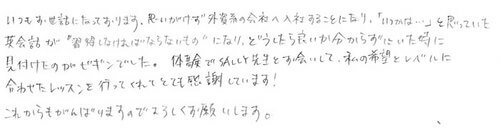 いつもお世話になっております。思いがけず外資系の会社へ入社することになり、「いつかは…」と思っていた
英会話が"習得しなければならないもの"になり、どうしたら良いか分からずにいた時に
見付けたのがゼギンでした。体験でSALLY先生とお会いして、私の希望とレベルに
合わせたレッスンを行ってくれてとても感謝しています!
これからもがんばりますのでよろしくお願いします。